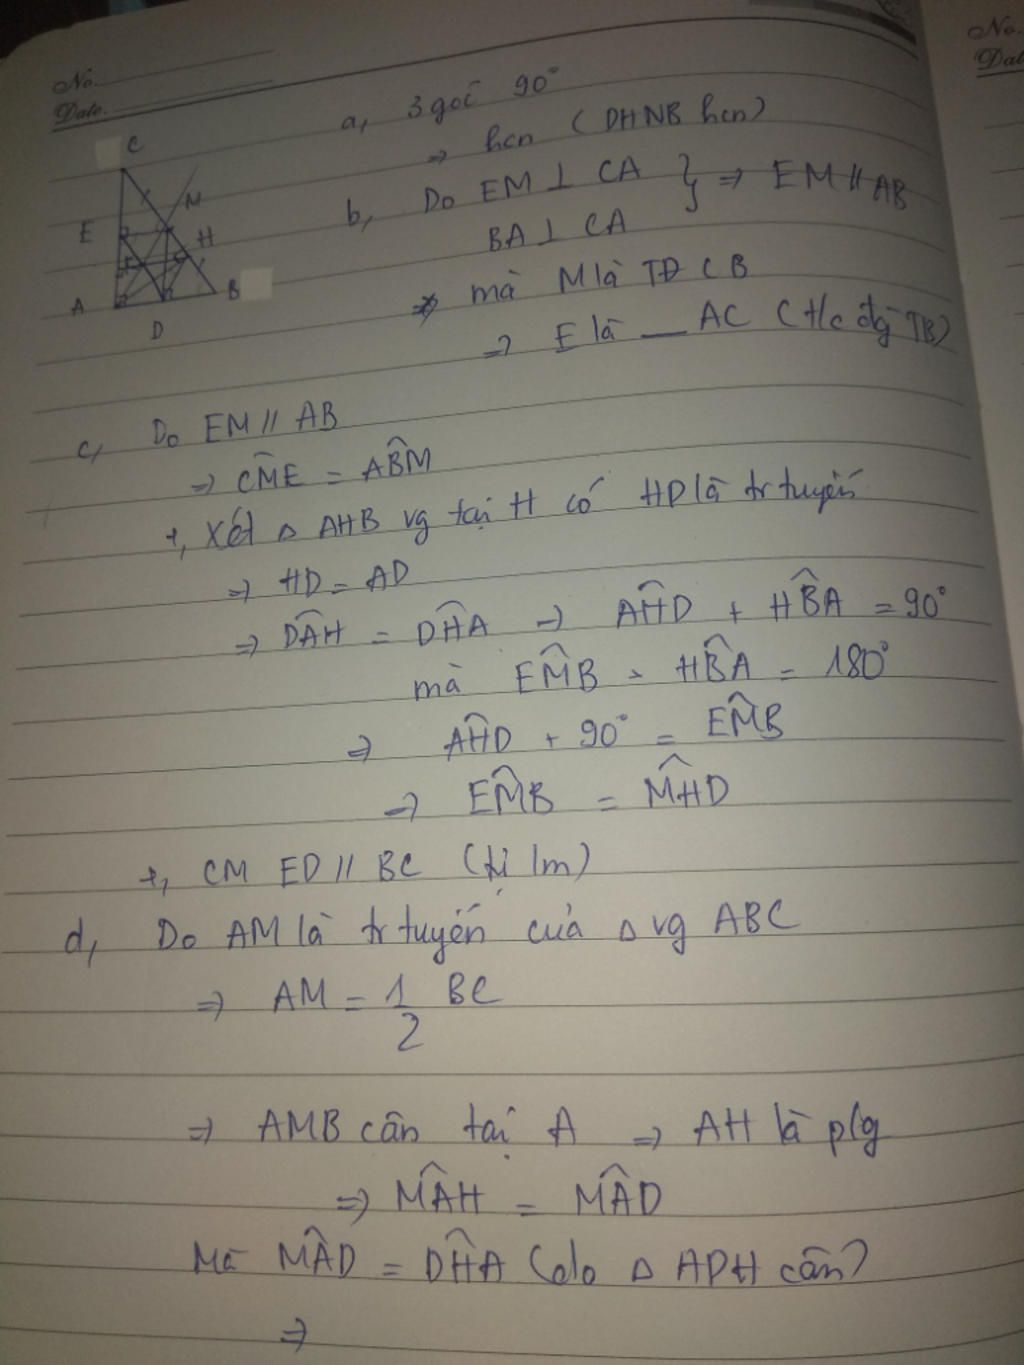 No.
Date.
No.
Dat
C
E
M
H
A
B
D
a, 3 goć 90°
⇒ hcn (DHNB hcn)
b, Do EM ⊥ CA } ⇒ EM // AB
BA ⊥ CA
mà M là TĐ CB
⇒ E là — AC (t/c đg TB)
c, Do EM // AB
⇒ CM̂E = AB̂M
+, Xét △ AHB vg tại H có HD là tr tuyến
⇒ HD = AD
⇒ DÂH = DĤA → AĤD + HB̂A = 90°
mà EM̂B + HB̂A = 180°
⇒ AĤD + 90° = EM̂B
→ EM̂B = MĤD
+, CM ED // BC (tị lm)
d, Do AM là tr tuyến của △ vg ABC
⇒ AM = 1/2 BC
⇒ AMB cân tại A ⇒ AH là p/g
⇒ MÂH = MÂD
Mà MÂD = DĤA (do △ ADH cân)
⇒